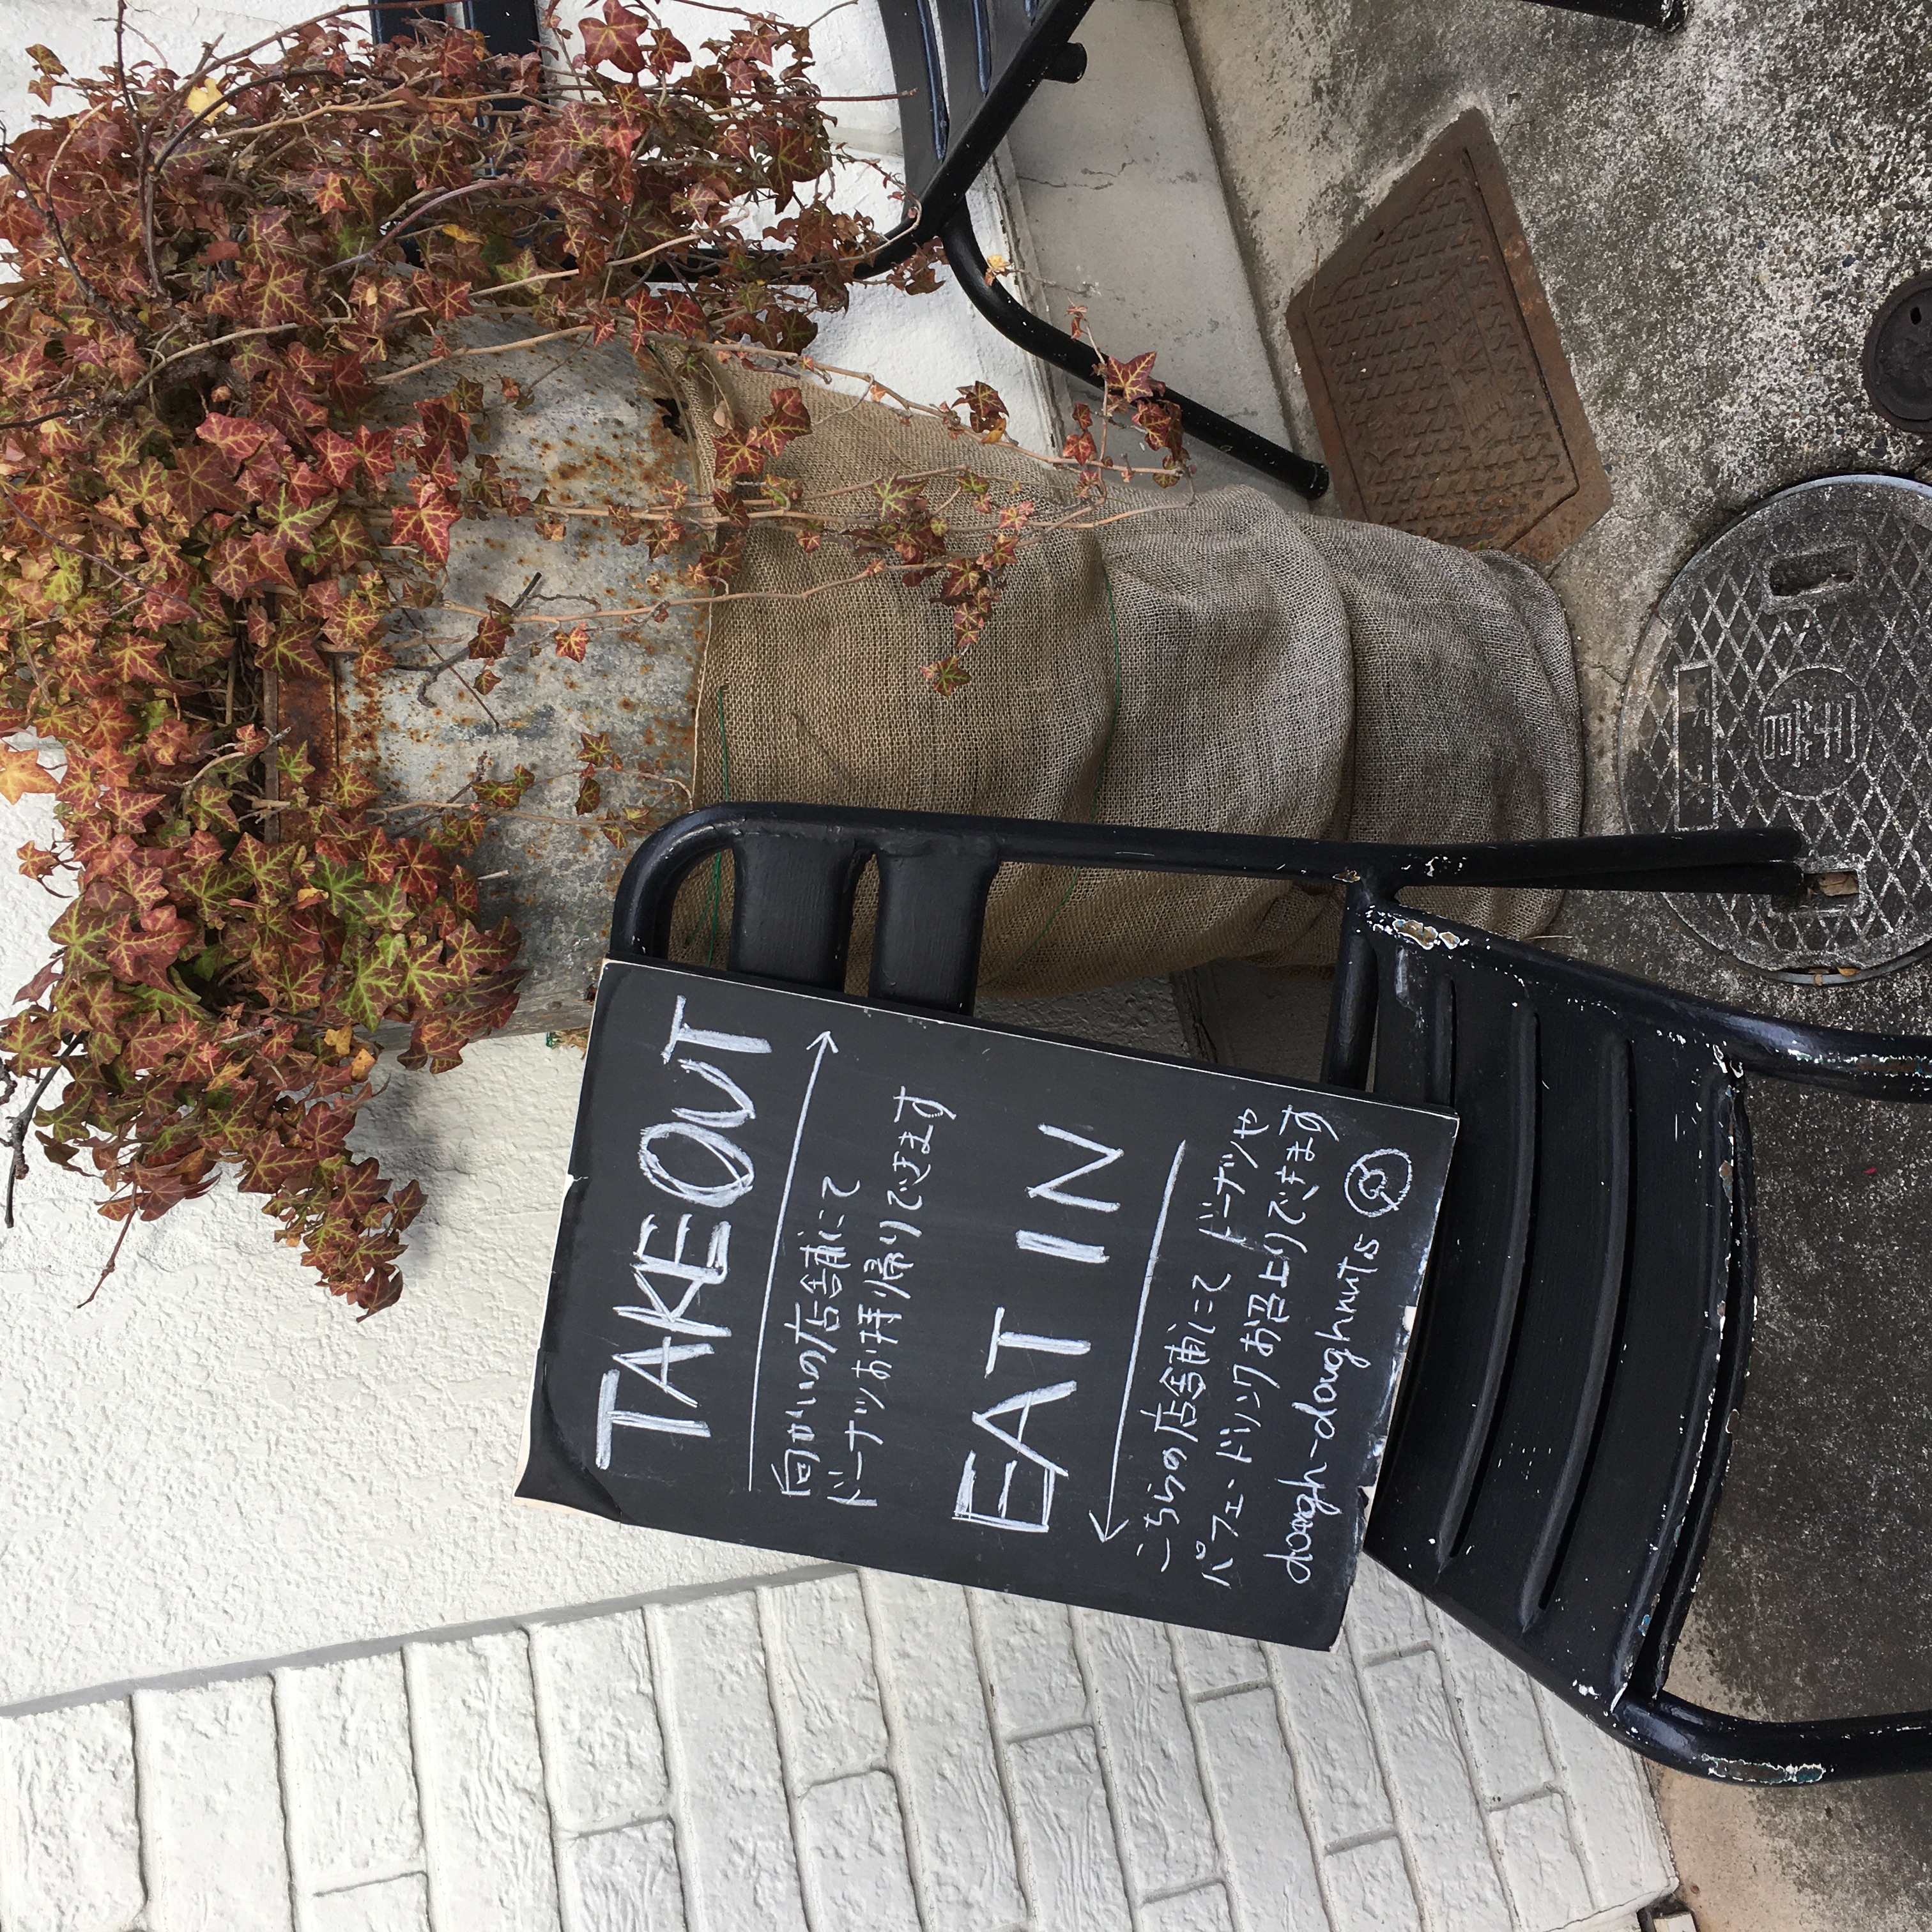 TAKE OUT
向かいの店舗にて
ドーナツお持帰りできます
EAT IN
こちらの店舗にて ドーナツや
パフェ・ドリンクお召上りできます
dough-doughnuts